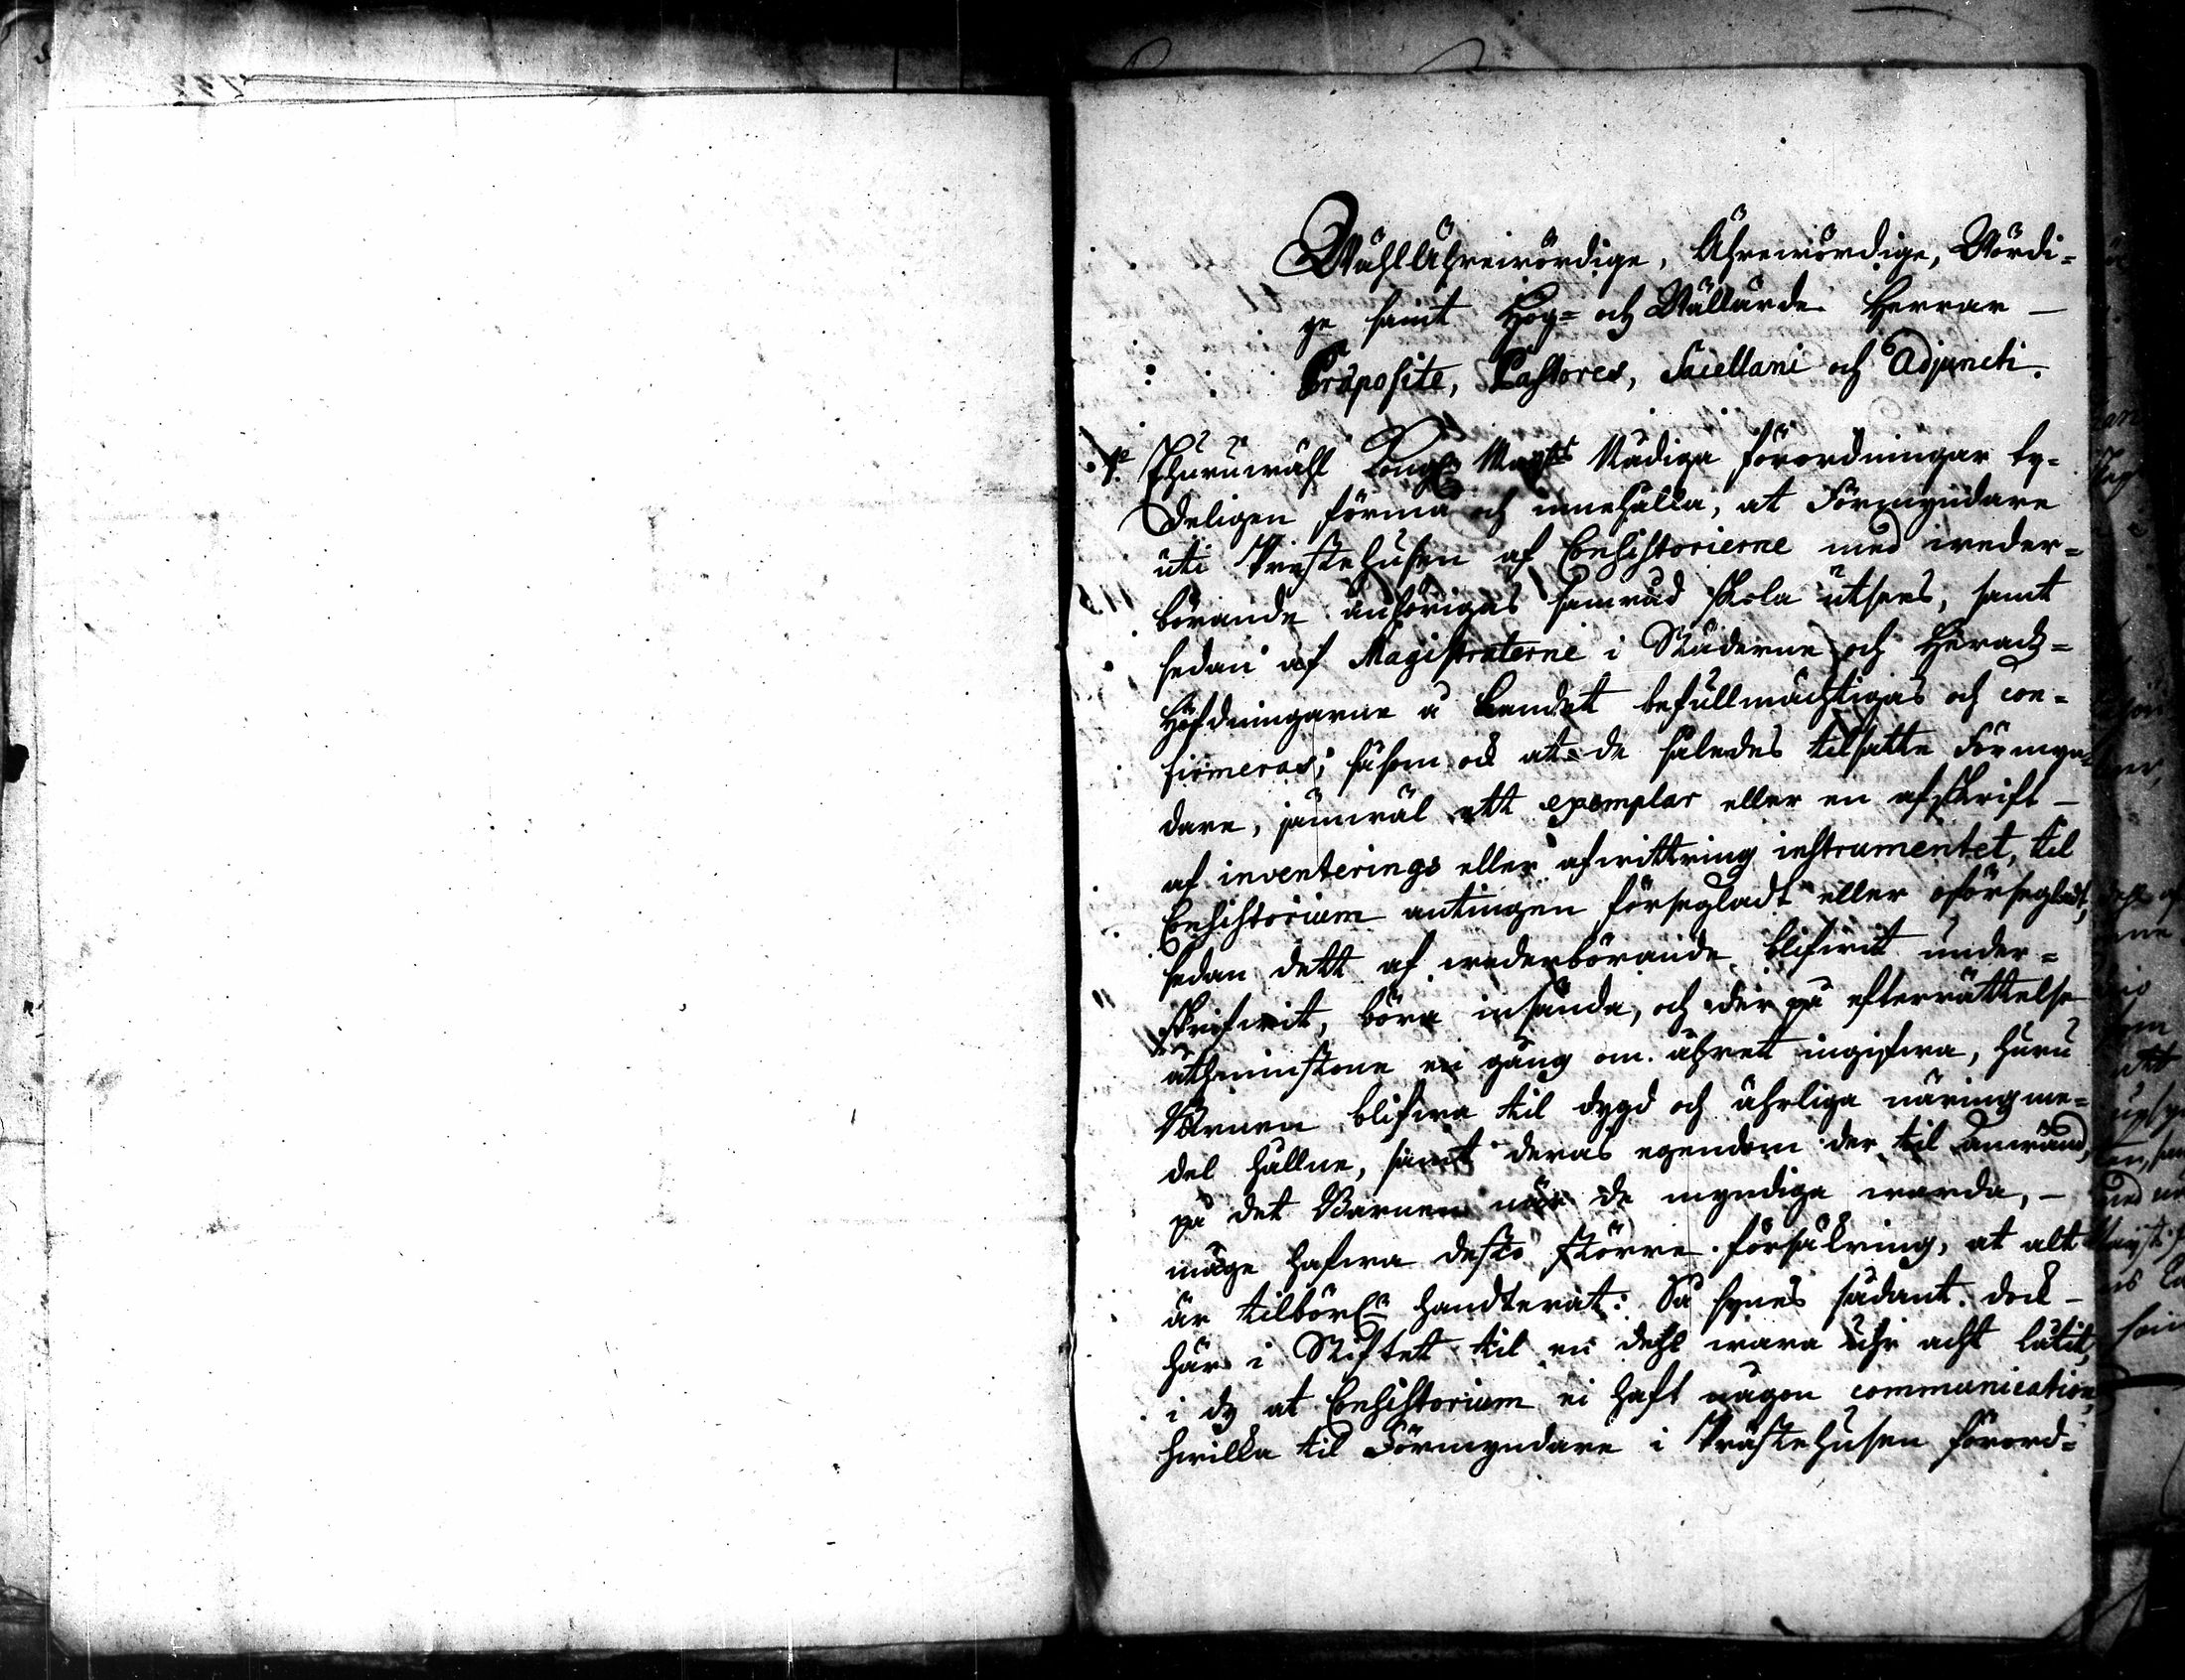 WählÄhrewördige, Ährewördige, Wördi=
ge samt Hög= och Wällärde Herrar —
Præposite, Pastores, Sacellani och Adjuncti.
1o Ehuruwähl Kongl. Mayts Nådiga förordningar ty=
deligen förmå och innehålla, at Förmyndare
uti Prestehusen af Consistorierne med weder=
börande anhörigas samråd skola utsees, samt
sedan af Magistraterne i Städerne och Herads=
Höfdningarne å Landet befullmächtigas och con=
firmeras; såsom ock at de således tilsatte Förmyn=
dare, jämwäl ett exemplar eller en afskrift —
af inventerings eller afwittring instrumentet, til
Consistorium antingen förseglad't eller oförseglad't,
sedan dett af wederbörande blifwit under=
skrifwit, böra insända, och der på efterrättelse
åthminstone en gång om åhret ingifwa, huru
Barnen blifwa til dygd och ährliga näringme=
del hållne, samt deras egendom der til anwänd,
på det Barnen när de myndige warda, —
måge hafwa desto större försäkring, at alt
är tilbörl. handterat: Så synes sådant dock —
här i Stiftet til en dehl wara uhr acht låtit,
i dy at Consistorium ei haft någon communication,
hwilka til Förmyndare i Prästehusen förord=